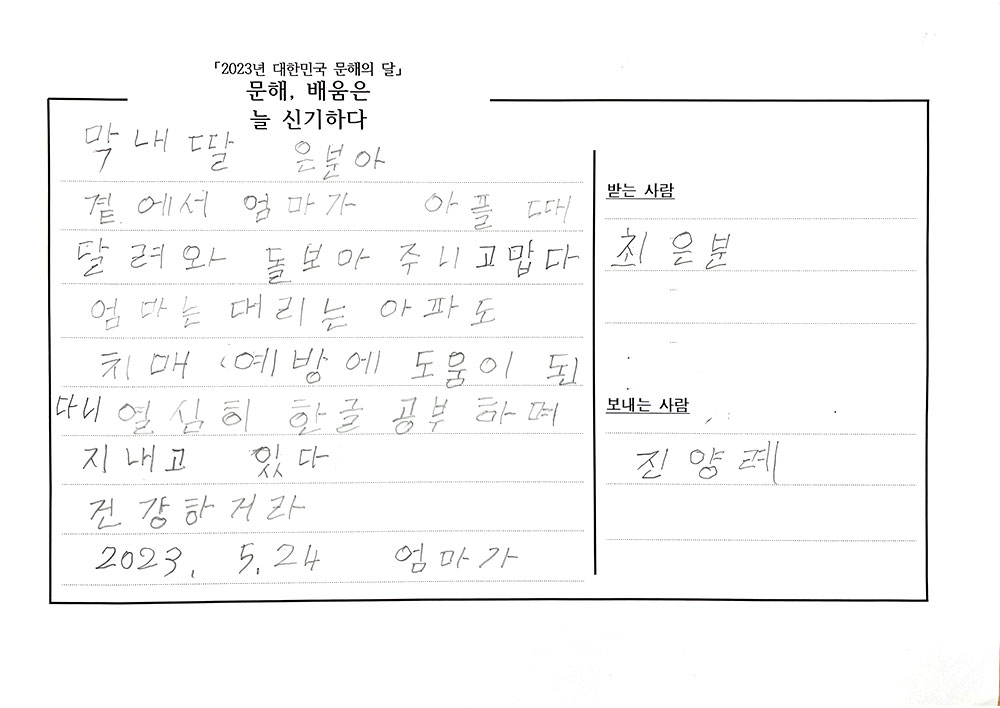 「2023년 대한민국 문해의 달」
문해, 배움은
늘 신기하다
막내 딸 은분아
곁에서 엄마가 아플 때
달려와 돌보아 주니 고맙다
엄마는 대리는 아파도
치매 예방에 도움이 된
다니 열심히 한글 공부하며
지내고 있다
건강하거라
2023. 5.24 엄마가
받는 사람
최은분
보내는 사람
진양례